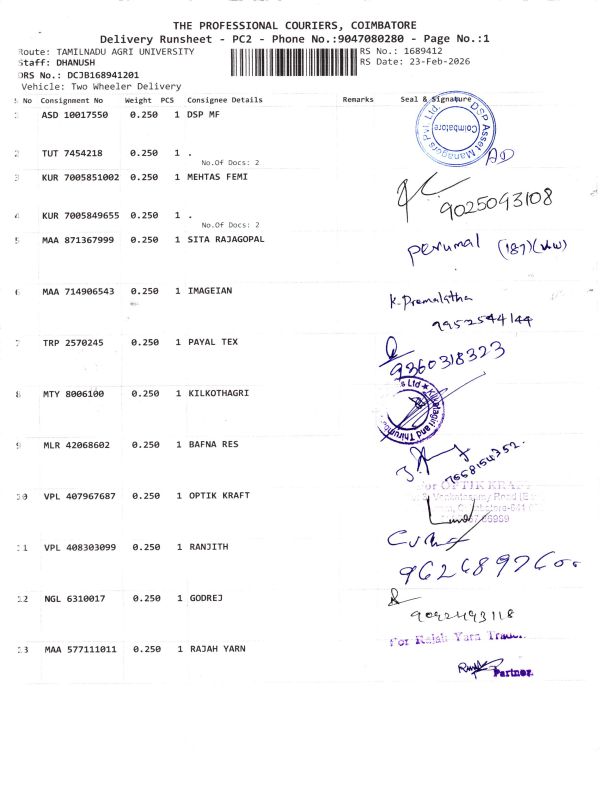 THE PROFESSIONAL COURIERS, COIMBATORE
Delivery Runsheet - PC2 - Phone No.:9047080280 - Page No.:1
Route: TAMILNADU AGRI UNIVERSITY RS No.: 1689412
Staff: DHANUSH RS Date: 23-Feb-2026
DRS No.: DCJB168941201
Vehicle: Two Wheeler Delivery
S No Consignment No Weight PCS Consignee Details Remarks Seal & Signature
1 ASD 10017550 0.250 1 DSP MF
DSP Asset Managers Pvt. Ltd. Coimbatore
2 TUT 7454218 0.250 1 .
No.Of Docs: 2
3 KUR 7005851002 0.250 1 MEHTAS FEMI
9025093108
4 KUR 7005849655 0.250 1 .
No.Of Docs: 2
5 MAA 871367999 0.250 1 SITA RAJAGOPAL
perumal (187)
6 MAA 714906543 0.250 1 IMAGEIAN
K. Premalatha
9952544144
7 TRP 2570245 0.250 1 PAYAL TEX
9360318323
8 MTY 8006100 0.250 1 KILKOTHAGRI
s Ltd Kilkotagiri and Thirumb
9 MLR 42068602 0.250 1 BAFNA RES
7668154352.
10 VPL 407967687 0.250 1 OPTIK KRAFT
For OPTIK KRAFT
Venkatasamy Road
11 VPL 408303099 0.250 1 RANJITH
12 NGL 6310017 0.250 1 GODREJ
9092493118
13 MAA 577111011 0.250 1 RAJAH YARN
For Rajah Yarn
Partner.